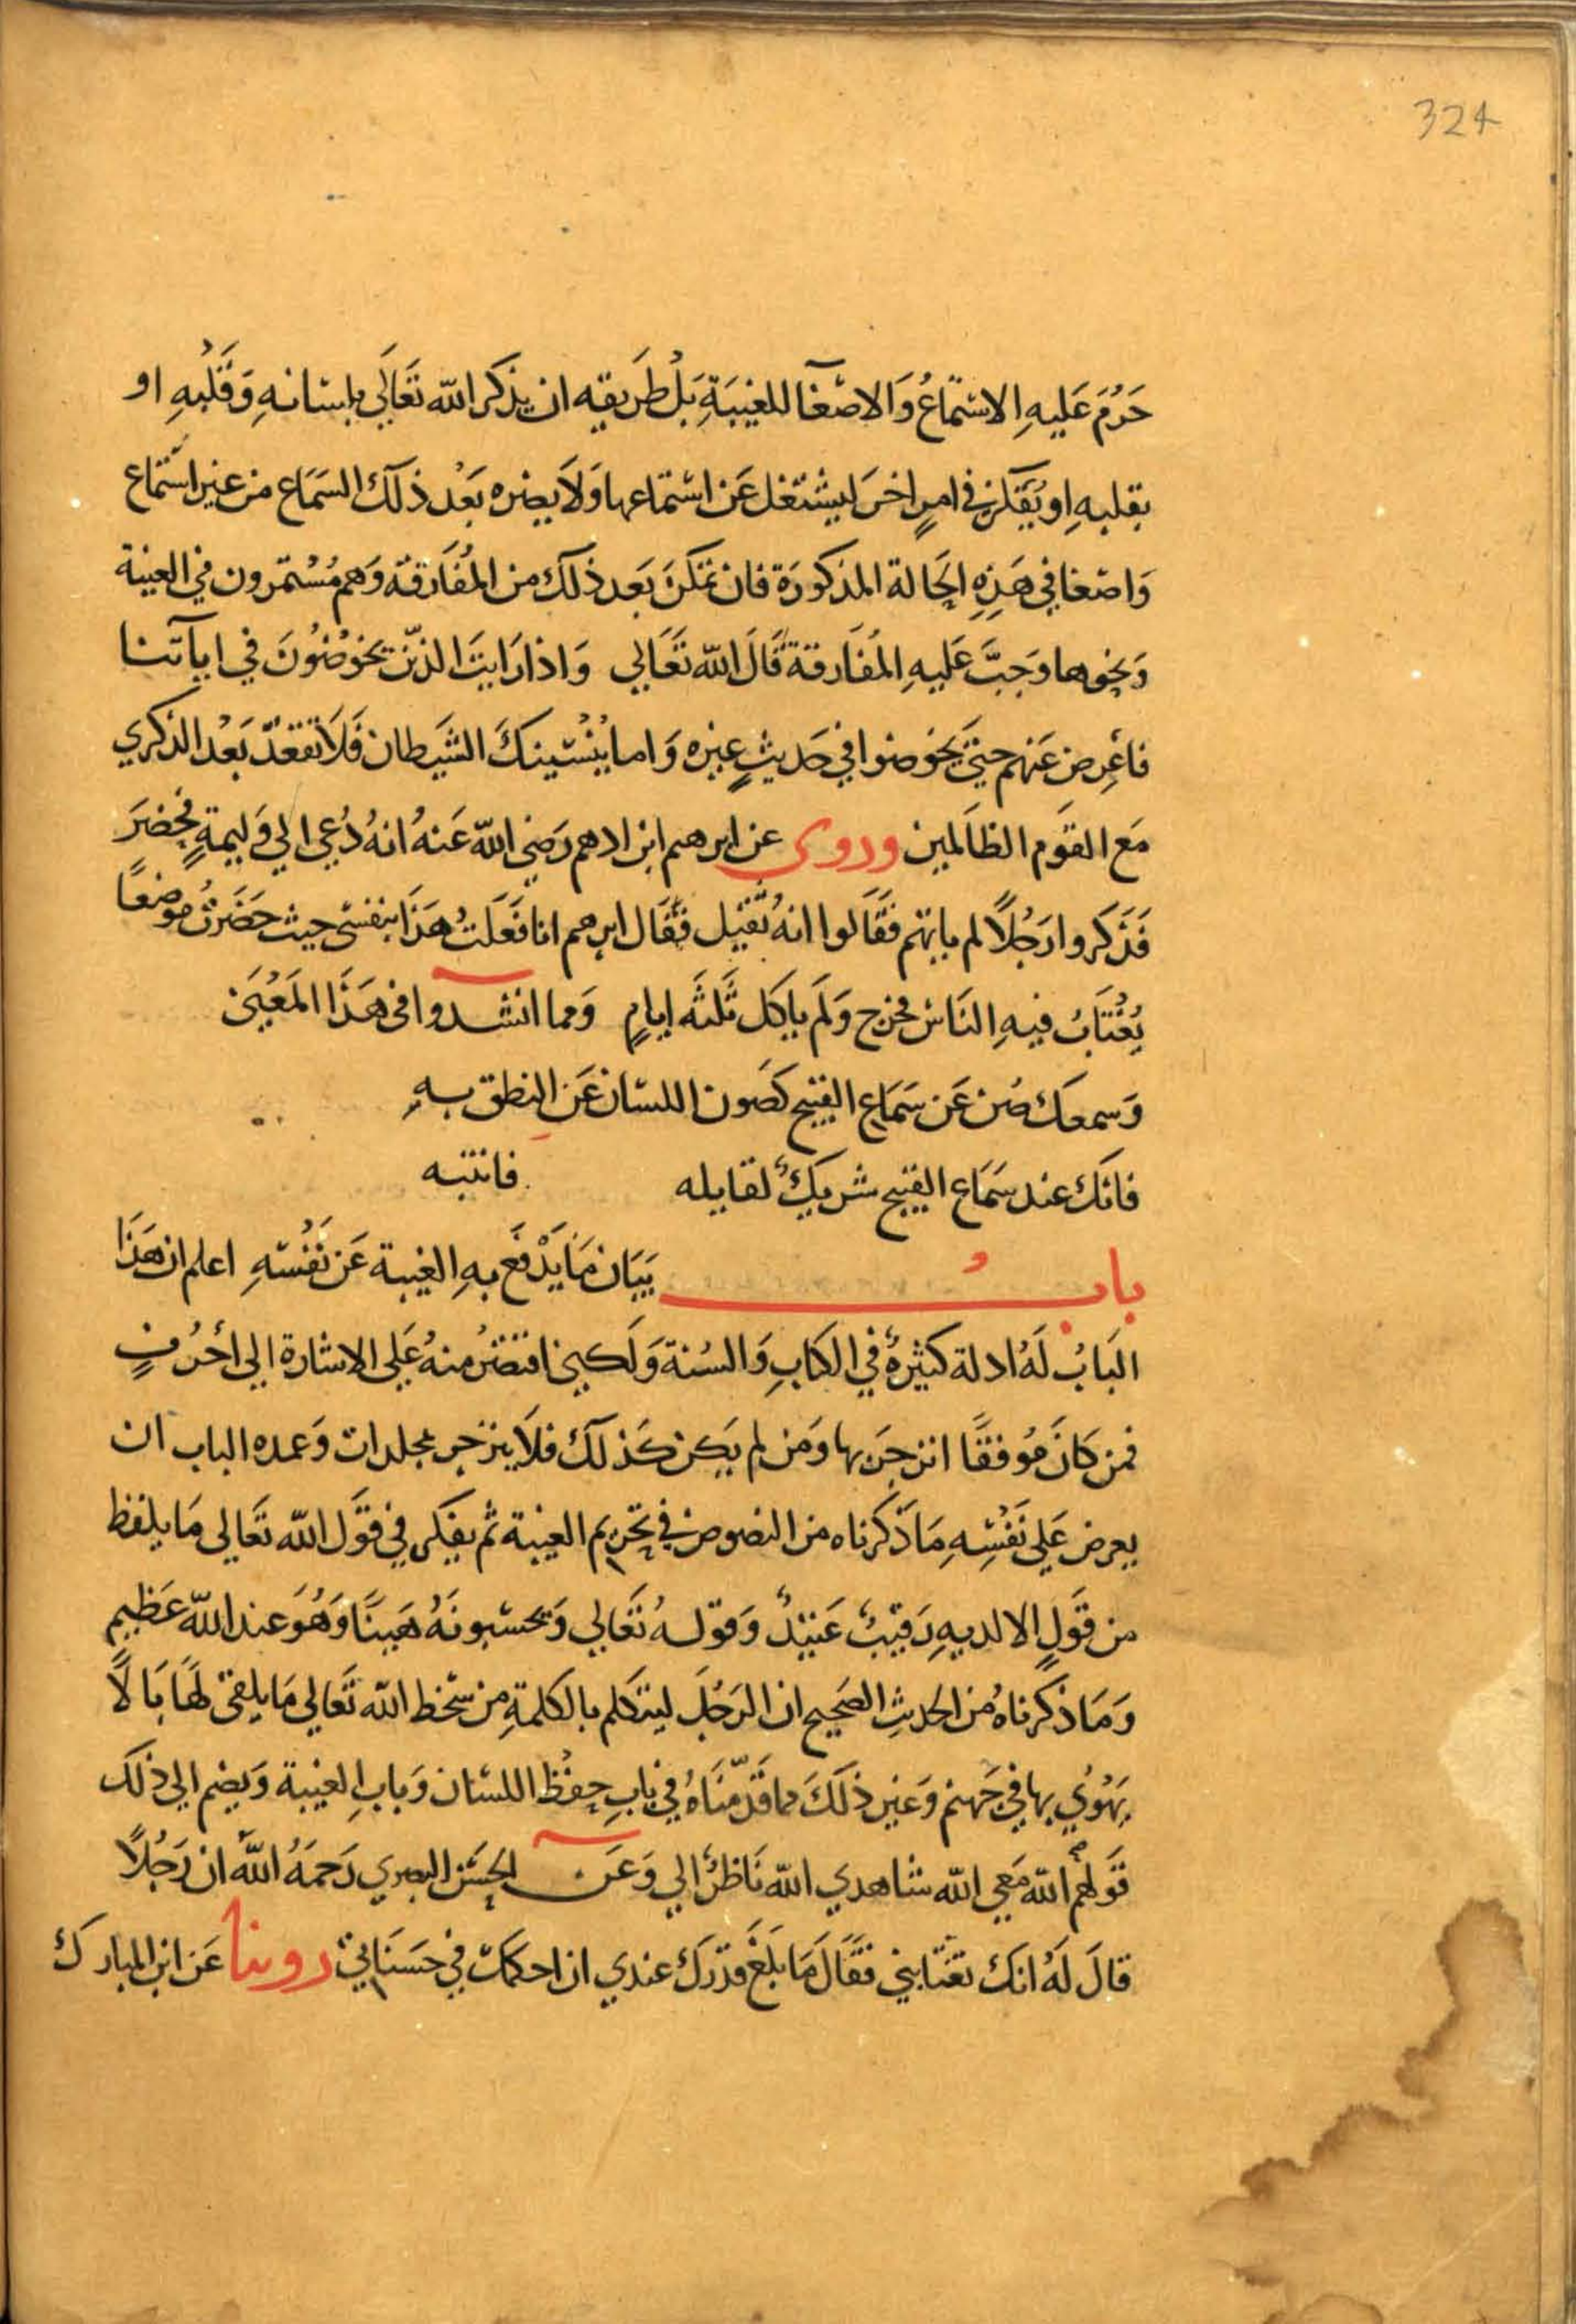 324
حَرُمَ عَليهِ الاسْتماعُ وَالاصْغآ للغيبَةِ بَلْ طَريقه ان يذكر الله تَعَالَي بلسَانهِ وَقَلْبهِ او
بقلبهِ او يُفَكّر في امرٍ اخرَ ليشتغل عَن اسْتماعها وَلاَ يضره بَعْد ذلكَ السَمَاع من غير اسْتماع
وَاصْغا في هَذِهِ الحَالة المذكورَة فان تمكنَ بَعد ذلكَ من المُفَارقة وَهم مُسْتمرون في الغيبة
وَنحوها وَجبَ عَليهِ المفَارقة قَالَ الله تَعَالي وَاذا رَايتَ الذيَن يخوضُونَ في اياَتنا
فاعْرِض عَنهم حتيَ يَخوضوا في حَديثٍ غيره وَاما يُنْسْينكَ الشَيطان فَلاَ تقعُدْ بَعْد الذكري
مَع القوَم الظاَلمين وروى عن ابرهيم ابن ادهم رَضي الله عَنهُ انهُ دُعي الي وَليمةٍ فحَضرَ
فَذَكروا رَجُلاً لم ياتهم فقَالوا انهُ ثقيل فقَال ابرهيم انا فَعَلتُ هَذَا بنفسي حيث حَضَرتُ موضعًا
يُغْتَابُ فيهِ النَاس فخرج وَلَم ياكل ثَلثَه ايامٍ وَمما انشدوا في هَذَا المَعْنَي
وَسمعكَ صُن عَن سَمَاع القبيح كصَون اللسَان عَن النطق بهِ
فانكَ عند سَمَاع القبيح شريكٌ لقايله فانتبه
بابُ بَيَان مَا يَدْفَعَ بهِ الغيبة عَن نَفْسهِ اعلم ان هَذَا
البَابُ لَهُ ادلة كثيرةٌ في الكتابِ وَالسُنة وَلَكني اقتصرُ منهُ عَلي الاشارة الي أحْرُفٍ
فمن كانَ مُوفقًا انزجَرَ بها وَمَن لم يَكن كَذلكَ فلاَ ينزجر بمجلدات وَعمده الباب ان
يعرض عَلي نَفْسِهِ مَا ذَكرناه من النصوص في تحَريم الغيبة ثم يفكر في قوَل الله تَعَالي مَا يلفظ
من قَولٍ الا لديهِ رَقيبٌ عَتيْدٌ وَقولهُ تَعَالي وَتحسَبونَهُ هَينًا وَهُوَ عند الله عَظيم
وَمَا ذكرناهُ من الحديثِ الصَحيح ان الرَجُلَ ليتكلم بالكلمةِ من سَخط الله تَعالي مَا يلقي لهَا بَا لاً
يَهْوُي بها في جَهنم وَغير ذلكَ مما قَدّمنَاهُ في بابِ حِفْظ اللسَان وَبابِ الغيبة وَيضم الي ذلكَ
قَولهم الله مَعي الله شاهدي الله نَاظرٌ الي وَعَن الحسَن البصري رَحمَهُ اللَّه ان رَجُلاً
قالَ لَهُ انكَ تغتَابني فقَالَ مَا بلَغَ قدْركَ عندي ان احكمكَ في حسَنَاتي روينا عَن ابن المباركَ